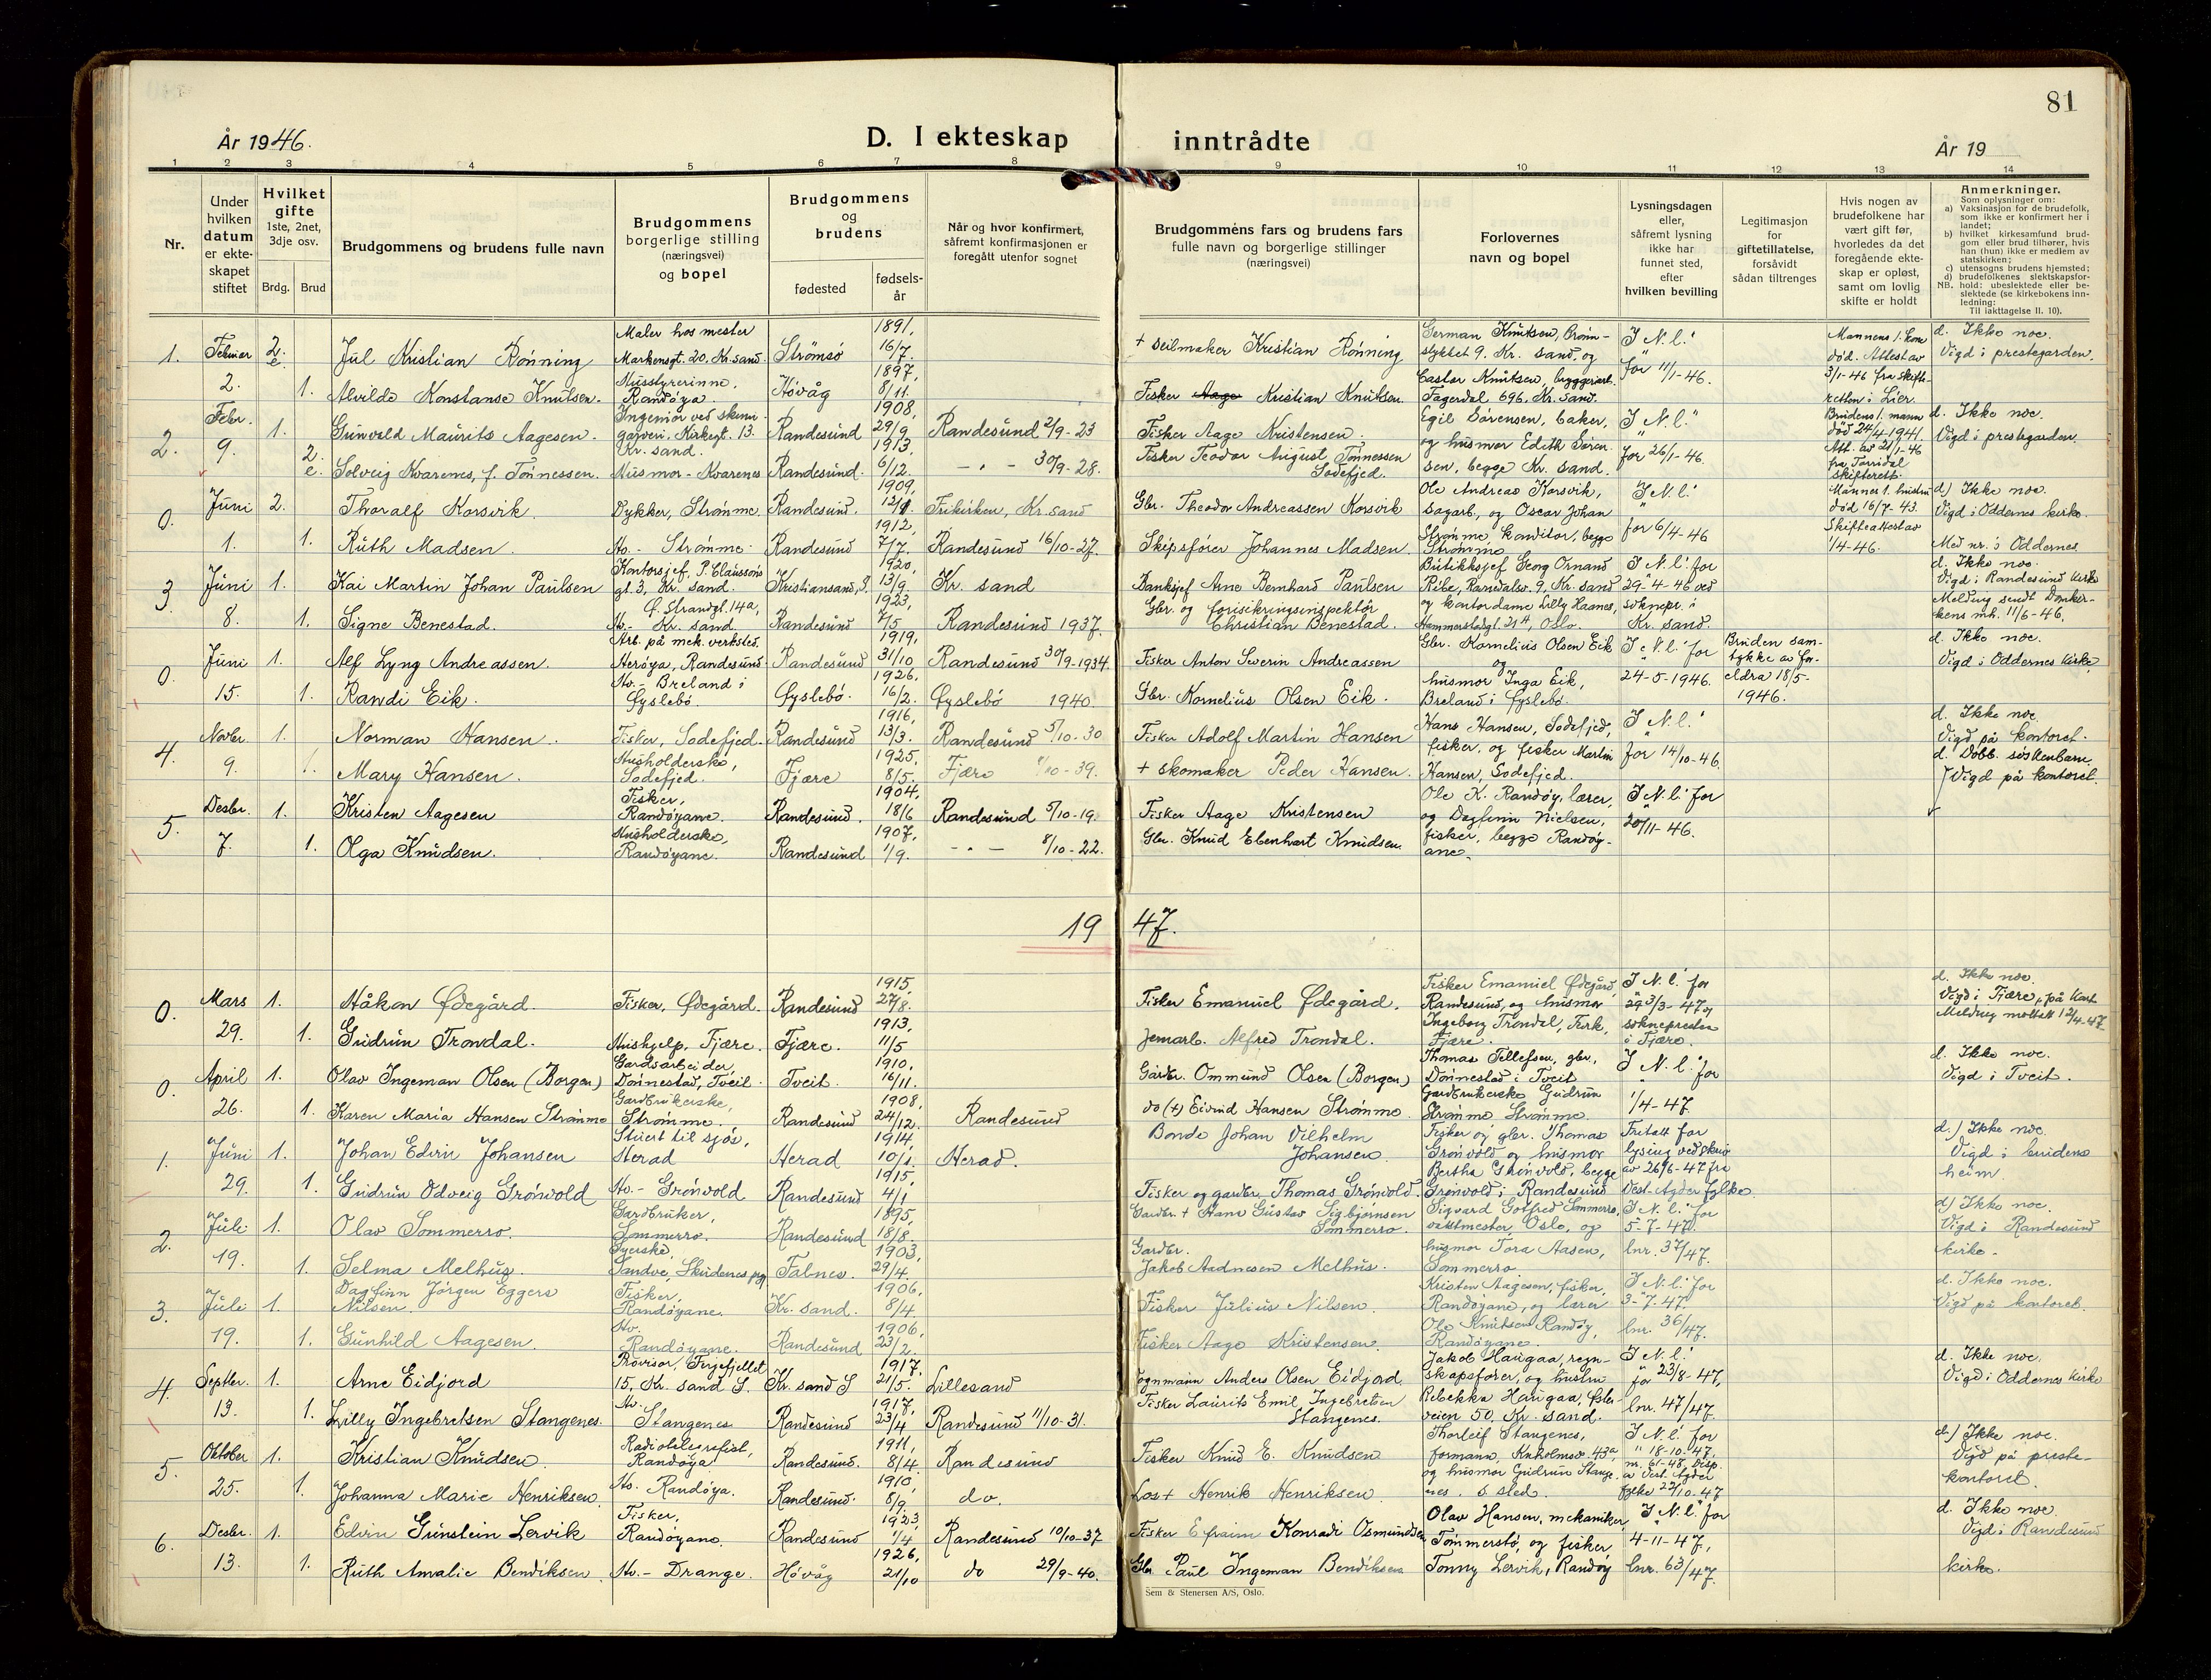 81
År 1946.
D. I ekteskap inntrådte
År 19
1 2 3 4 5 6 7 8 9 10 11 12 13 14
Nr.
Under
hvilken
datum
er ekte-
skapet
stiftet
Hvilket
gifte
1ste, 2net,
3dje osv.
Brdg. Brud
Brudgommens og brudens fulle navn
Brudgommens
borgerlige stilling
(næringsvei)
og bopel
Brudgommens
og
brudens
fødested
fødsels-
år
Når og hvor konfirmert,
såfremt konfirmasjonen er
foregått utenfor sognet
Brudgommens fars og brudens fars
fulle navn og borgerlige stillinger
(næringsvei)
Forlovernes
navn og bopel
Lysningsdagen
eller,
såfremt lysning
ikke har
funnet sted,
efter
hvilken bevilling
Legitimasjon
for
giftetillatelse,
forsåvidt
sådan tiltrenges
Hvis nogen av
brudefolkene har
vært gift før,
hvorledes da det
foregående ekte-
skap er opløst,
samt om lovlig
skifte er holdt
Anmerkninger.
Som oplysninger om:
a) Vaksinasjon for de brudefolk,
som ikke er konfirmert her i
landet;
b) hvilket kirkesamfund brud-
gom eller brud tilhører, hvis
han (hun) ikke er medlem av
statskirken;
c) utensogns brudens hjemsted;
d) brudefolkenes slektskapsfor-
NB. hold: ubeslektede eller be-
slektede (se kirkebokens inn-
ledning:
Til iakttagelse II. 10).
1. Februar 2. e. Jul Kristian Rönning Maler hos mester Markensgt. 20, Kr. sand. Strömsö 1891, 16/7. + Seilmaker Kristian Rönning German Knutsen, Brönn- stykket 9. Kr. sand, og "J N. l." for 11/1-46. Mannens 1. kone död. Attest av 3/1-46 fra skifte- retten i Lier. d. Ikke noe. Vigd i prestegarden.
2. 1. Alvilde Konstanse Knutsen. Husstyrerinne, Randöya. Hövåg 1897, 8/11. Fisker Aage Kristian Knutsen. Castor Knutsen, byggeriarb. Fagerdal 696, Kr. sand.
2. Febr. 9. 1. Gunvald Maurits Aagesen. Ingeniör ved skinn- garveri, Kirkegt. 13. Kr. sand. Randesund 1908, 29/9 Randesund 2/9-23 Fisker Aage Kristensen. Egil Sörensen, baker, "J N. l." for 26/1-46. Brudens 1. mann död 24/4-1941. Att. av 21/1-46 fra Torridal skifterett. d. Ikke noe. Vigd i prestegarden.
2. e. Solveig Kvarenes, f. Tönnessen. Husmor - Kvarenes Randesund. 1913, 6/12. - " - 30/9-28. Fisker Teodor August Tönnessen Sodefjed. og husmor Edith Sören- sen, begge Kr. sand.
0. Juni 1. 2. Thoralf Korsvik. Dykker, Strømme. Randesund. 1909, Frikirken, Kr. sand Gbr. Theodor Andreassen Korsvik Ole Andreas Korsvik, sagarb., og Oscar Johan "J N. l." for 6/4-46 Mannes 1. hustru död 16/7-43. Skifteattest av 1/4-46. d) Ikke noe. Vigd i Oddernes kirke.
1. Ruth Madsen. Hv. - Strømme. Randesund 1912, 7/7. Randesund 16/10-27. Skipsfører Johannes Madsen. Strømme, konditor, begge Strømme Med nr. i Oddernes
3. Juni 8. 1. Kai Martin Johan Paulsen Kontorsjef, P. Claussöns gt. 3, Kr. sand. Kristiansand, S. 1920, 13/9. Kr. sand Banksjef Arne Bernhard Paulsen Butikksjef Georg Ornand Ribe, Randalsv. 9, Kr. sand "J N. l." for 29-4-46 ved soknepr. i Kr. sand. d. Ikke noe. Vigd i Randesund kirke Melding sendt Domkir- kens mh. 11/6-46.
1. Signe Benestad. Ø. Strandgt. 14a, Hv. - Kr. sand Randesund 1923, 7/5 Randesund 1937. Gbr. og forsikringsinspektør Christian Benestad. og kontordame Lilly Haanes, Hammerstadgt. 21A, Oslo.
0. Juni 15. 1. Alf Lyng Andreassen. Arb. på mek. verksted. Herøya, Randesund. Randesund 1919, 31/10 Randesund 30/9-1934. Fisker Anton Severin Andreassen Gbr. Kornelius Olsen Eik og "J N. l." for 24-5-1946. Bruden sam- tykke av for- eldra 18/5- 1946. d. Ikke noe. Vigd i Oddernes kirke,
1. Randi Eik. Hv. - Breland i Øyslebö. Øyslebö. 1926, 16/2. Øyslebö 1940. Gbr. Kornelius Olsen Eik. husmor Inga Eik, Breland i Øyslebö.
4. Novbr. 9. 1. Norman Hansen. Fisker, Sodefjed. Randesund 1916, 13/3. Randesund 5/10-30 Fisker Adolf Martin Hansen Hans Hansen, Sodefjed, fisker, og fisker Martin Hansen, Sodefjed. "J N. l." for 14/10-46. d. Ikke noe. Vigd på kontoret.
1. Mary Hansen. Husholderske, Sodefjed. Fjære 1925, 8/5. Fjære 10-39. + skomaker Peder Hansen. d. Dobb. söskenbarn. Vigd på kontoret.
5. Desbr. 7. 1. Kristen Aagesen Fisker, Randöyane. Randesund. 1904, 18/6 Randesund 5/10-19. Fisker Aage Kristensen Ole K. Randöy, lærer, og Dagfinn Nielsen, "J N. l." for 20/11-46.
1. Olga Knudsen. Husholderske, Randöyane. Randesund 1907, 1/9. - " - 8/10-22. Gbr. Knud Ebenhart Knudsen. fisker, begge Randöy- ane.
1947.
0. Mars 29. 1. Håkon Ødegård. Fisker, Ødegård. Randesund 1915, 27/8. Fisker Emanuel Ødegård. Fisker Emanuel Ødegård, Randesund, og husmor "J N. l." for 29/3-47 soknepresten i Fjære. d. Ikke noe. Vigd i Fjære, på kont. Melding mottatt 12/4-47
1. Gudrun Trondal. Hushjelp, Fjære. Fjære. 1913, 11/5 Jernarb. Alfred Trondal. Ingeborg Trondal, Fevik, Fjære.
0. April 26. 1. Olav Ingeman Olsen (Borgen) Gardsarbeider, Dönnestad, Tveit. Tveit. 1910, 16/11. Gardbr. Ommund Olsen (Borgen) Thomas Tellefsen, gbr., Dönnestad i Tveit "J N. l." for 1/4-47. d. Ikke noe. Vigd i Tveit.
1. Karen Maria Hansen Strømme Gardbrukerske, Strømme. Randesund 1908, 24/12. Randesund do (+) Eivind Hansen Strømme. Gardbrukerske Gudrun Strømme Strømme.
1. Juni 29. 1. Johan Edvin Johansen Stuert til sjös, Herad Herad 1914, 10/1. Herad. Bonde Johan Vilhelm Johansen. Fisker og gbr. Thomas Grönvold og husmor Fritatt for lysing ved skriv av 26/6-47 fra Vest-Agder fylke. d.) Ikke noe. Vigd i brudens heim.
1. Gudrun Odveig Grönvold Hv. - Grönvold Randesund 1915, 4/1 Fisker og gardbr. Thomas Grönvold. Bertha Grönvold, begge Grönvold i Randesund
2. Juli 19. 1. Olav Sommerro. Gardbruker, Sommerro. Randesund 1895, 18/8. Gardbr. + Hans Gustav Sigbjørnsen Sommerro. Sigvard Gotfred Sommerro, vaktmester, Oslo, og "J N. l." for 5-7-47. lnr. 37/47. d) Ikke noe. Vigd i Randesund kirke.
1. Selma Melhus. Syerske, Sandve, Skudenes pgj. Falnes. 1903, 29/4. Gardbr. Jakob Aadnesen Melhus. husmor Tora Aasen, Sommerro
3. Juli 19. 1. Dagfinn Jörgen Eggers Nilsen. Fisker, Randöyane. Kr. sand. 1906, 8/4 Fisker Julius Nilsen. Kristen Aagesen, fisker, Randöyane, og lærer "J N. l." for 3-7-47. lnr. 36/47. d. Ikke noe. Vigd på kontoret.
1. Gunhild Aagesen. Hv. Randöyane. Randesund 1906, 23/2. Fisker Aage Kristensen. Ole Knutsen Randöy, Randöyane.
4. Septbr. 13. 1. Arne Eidjord Provisor, 15, Kr. sand S. Kr. sand S 1917, 21/5. Lillesand Anders Olsen Eidjord Jakob Haugaa, regn- skapsförer, og hustru "J N. l." for 23/8-47, lnr. 47/47. d. Ikke noe. Vigd i Oddernes kirke
1. Lilly Ingebretsen Stangenes. Hv. Stangenes Randesund 1917, 23/4 Randesund 11/10-31. Fisker Laurits Emil Ingebretsen Stangenes. Rebekka Haugaa, veien 50, Kr. sand.
5. Oktober 25. 1. Kristian Knudsen. Radiotelegrafist, Randöya Randesund. 1911, 8/4. Randesund Fisker Knud E. Knudsen Thorleif Stangenes, formann, Kuholmsv. 43a, "J N. l." for 18-10-47, n. 61-48. Disp. a Vest-Agder fylke 22/10-47 d.) Ikke noe. Vigd på preste- kontoret.
1. Johanna Marie Henriksen. Hv. Randöya. Randesund. 1910, 8/9. do. Los + Henrik Henriksen. og husmor Gudrun Stange- nes. s. sted.
6. Desbr. 13. 1. Edvin Gunstein Lervik Fisker, Randöyane. Randesund 1923 1/4 Randesund 10/10-37 Fisker Efraim Konradi Osmundsen Olav Hansen, mekaniker, Tömmerstö, og fisker "J N. l." for 4-11-47, lnr. 63/47. d. Ikke noe. Vigd i Randesund kirke.
1. Ruth Amalie Bendiksen. Hv. - Drange. Hövåg 1926, 21/10 do 29/9-40. Gbr. Paul Ingeman Bendiksen Tonny Lervik, Randöy
Sem & Stenersen A/S, Oslo.